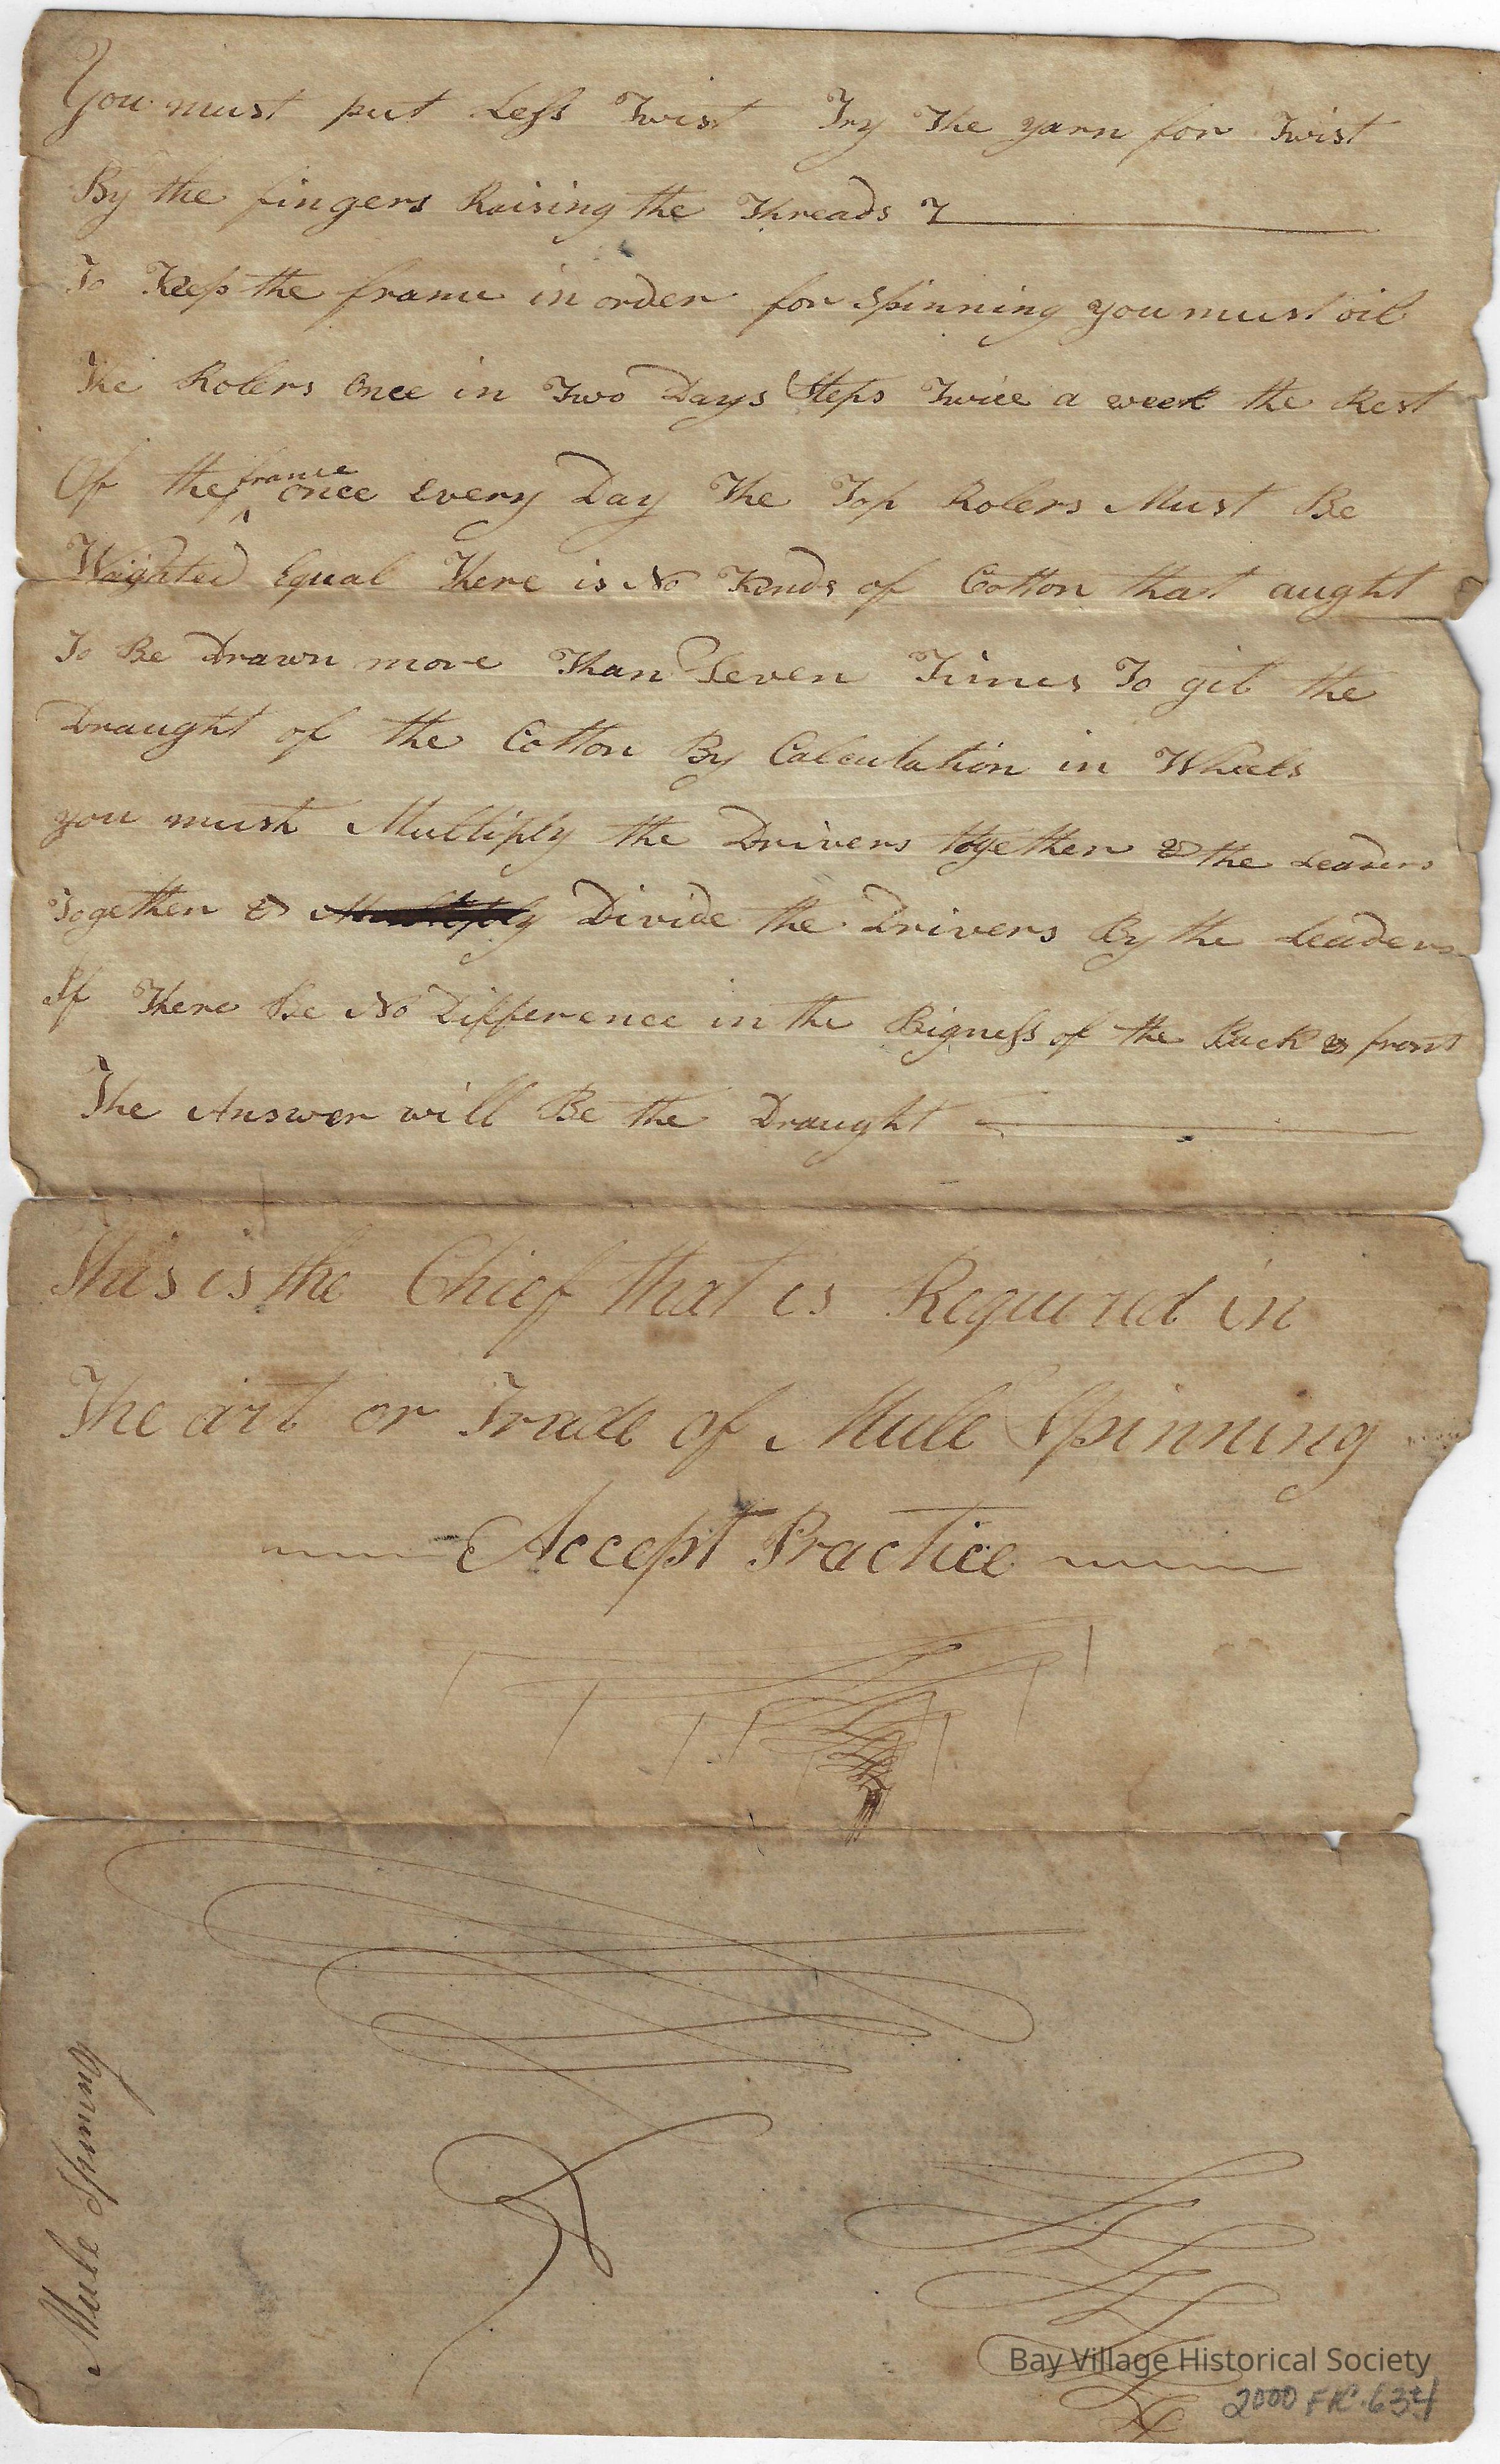 You must put Less Twist Try The yarn for Twist
By the fingers Raising the Threads
To Keep the frame in order for Spinning you must oil
The Rolers Once in Two Days Steps Twice a week the Rest
Of the frame once every Day The Top Rolers Must Be
Waighted Equal There is No Kinds of Cotton that aught
To Be Drawn more Than Seven Times To git the
Draught of the Cotton By Calculation in Wheels
you must Multiply the Drivers together & the Leaders
Together & Multiply Divide the Drivers By the Leaders
If There Be No Difference in the Bigness of the Back & front
The Answer will Be the Draught
This is the Chief that is Required in
The art or Trade of Mule Spinning
Accept Practice
Mule Spining
Bay Village Historical Society
2000 FIC.634